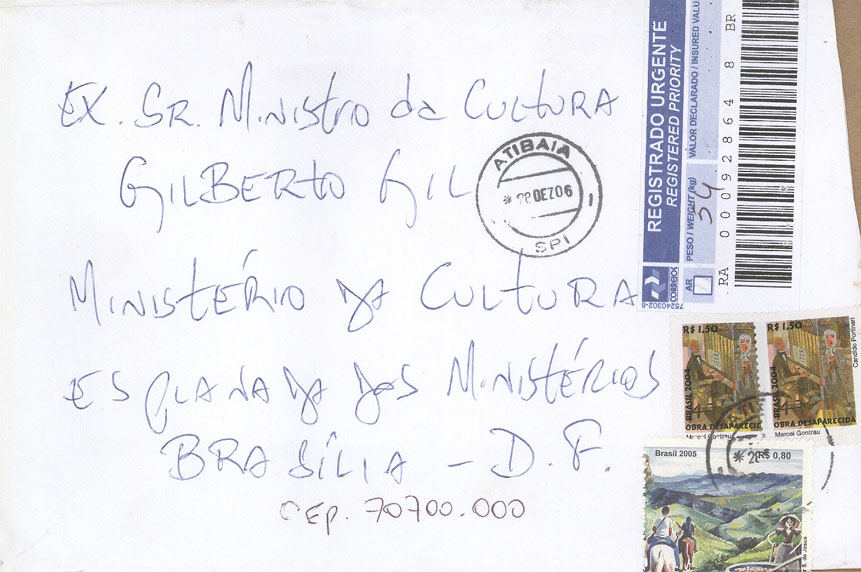 EX. SR. MINISTRO da CULTURA
GILBERTO GIL
MINISTÉRIO DA CULTURA
ESPLANADA DOS MINISTÉRIOS
BRASÍLIA - D.F.
CEP. 70700.000
ATIBAIA
* 28 DEZ 06
SPI
REGISTRADO URGENTE
REGISTERED PRIORITY
CORREIOS
75240302-8
AR
PESO / WEIGHT (kg)
34
VALOR DECLARADO / INSURED VALU
RA 00092864 8 BR
R$ 1,50
BRASIL 2004
OBRA DESAPARECID
Marcel Gontrau
R$ 1,50
BRASIL 2004
OBRA DESAPARECIDA
Marcel Gontrau
Candido Portinari
Brasil 2005
R$ 0,80
S. de Jesus